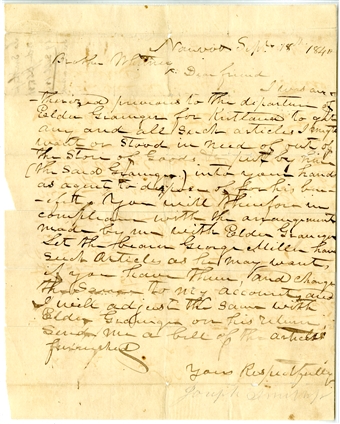 Nauvoo Sept 18 1840
Brother
Dear friend
I was au
-thorized previous to the departure of
Elder Granger for Kirtland to get
any and all such articles I might
want or stood in need of out of
the Store of Goods put by him
(the said Granger) into your hands
as agent to dispose of for his bene
-fit. You will therefore in
compliance with the arrangement
made by me with Elder Granger
Let the bearer George Miller have
such Articles as he may want,
if you have them, and charge
the Same to my account, and
I will adjust the same with
Elder Granger on his return
Send me a bill of the articles
furnished
Yours Respectfully
Joseph